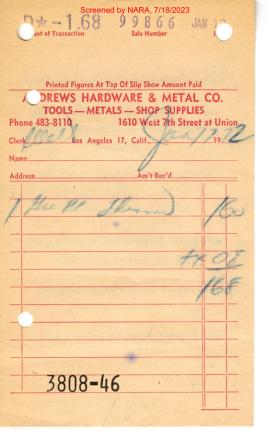 Screened by NARA, 7/18/2023
* -1.68 99866 JAN 1
nt of Transaction Sale Number
Printed Figures At Top Of Slip Show Amount Paid
ANDREWS HARDWARE & METAL CO.
TOOLS — METALS — SHOP SUPPLIES
Phone 483-8110 1610 West 7th Street at Union
Clerk Los Angeles 17, Calif., Jan 17 1972
Name
Address Am't Rec'd
1 160
08
168
3808-46